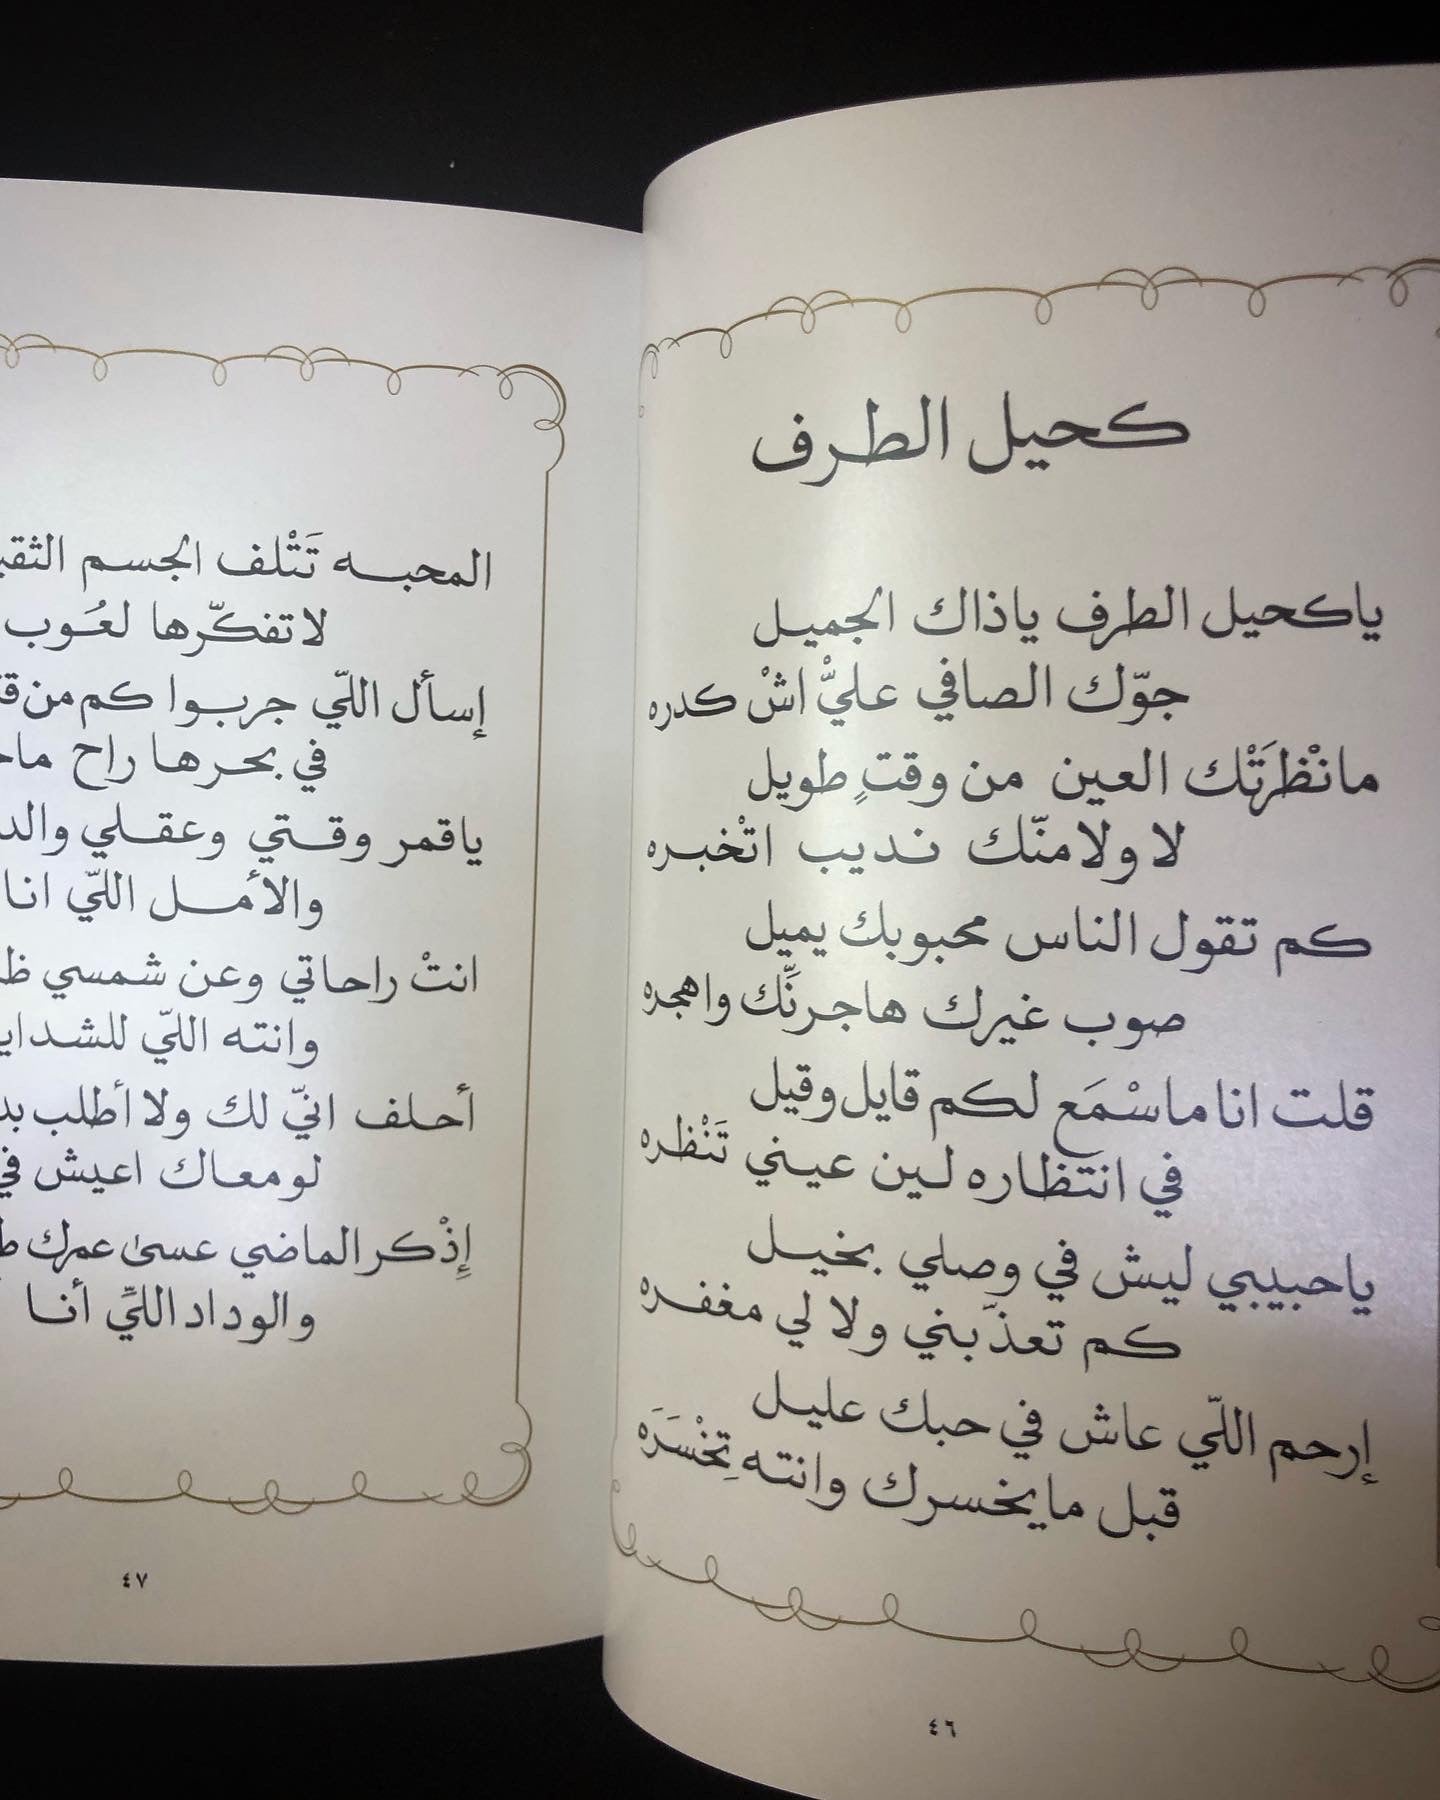 كحيل الطرف
ياكحيل الطرف ياذاك الجميل
جوّك الصافي عليّْ اشْ كدره
مانْظرَتْك العين من وقتٍ طويل
لا ولا منّك نديب اتْخبره
كم تقول الناس محبوبك يميل
صوب غيرك هاجرنِّك واهجره
قلت انا ماسْمَع لكم قايل وقيل
في انتظاره لين عيني تَنْظره
ياحبيبي ليش في وصلي بخيل
كم تعذّبني ولا لي مغفره
إرحم اللّي عاش في حبك عليل
قبل مايخسرك وانته تِخْسَرَه
٤٦
المحبه تَتْلف الجسم
لاتفكّرها لعُوب
إسأل اللّي جربوا كم من
في بحرها راح
ياقمر وقتي وعقلي
والأمل اللّي انا
انتْ راحاتي وعن شمسي
وانته اللّي
أحلف انّي لك ولا أطلب
لو معاك اعيش في
إِذْكر الماضي عسىٰ عمرك
والوداد اللّي أنا
٤٧